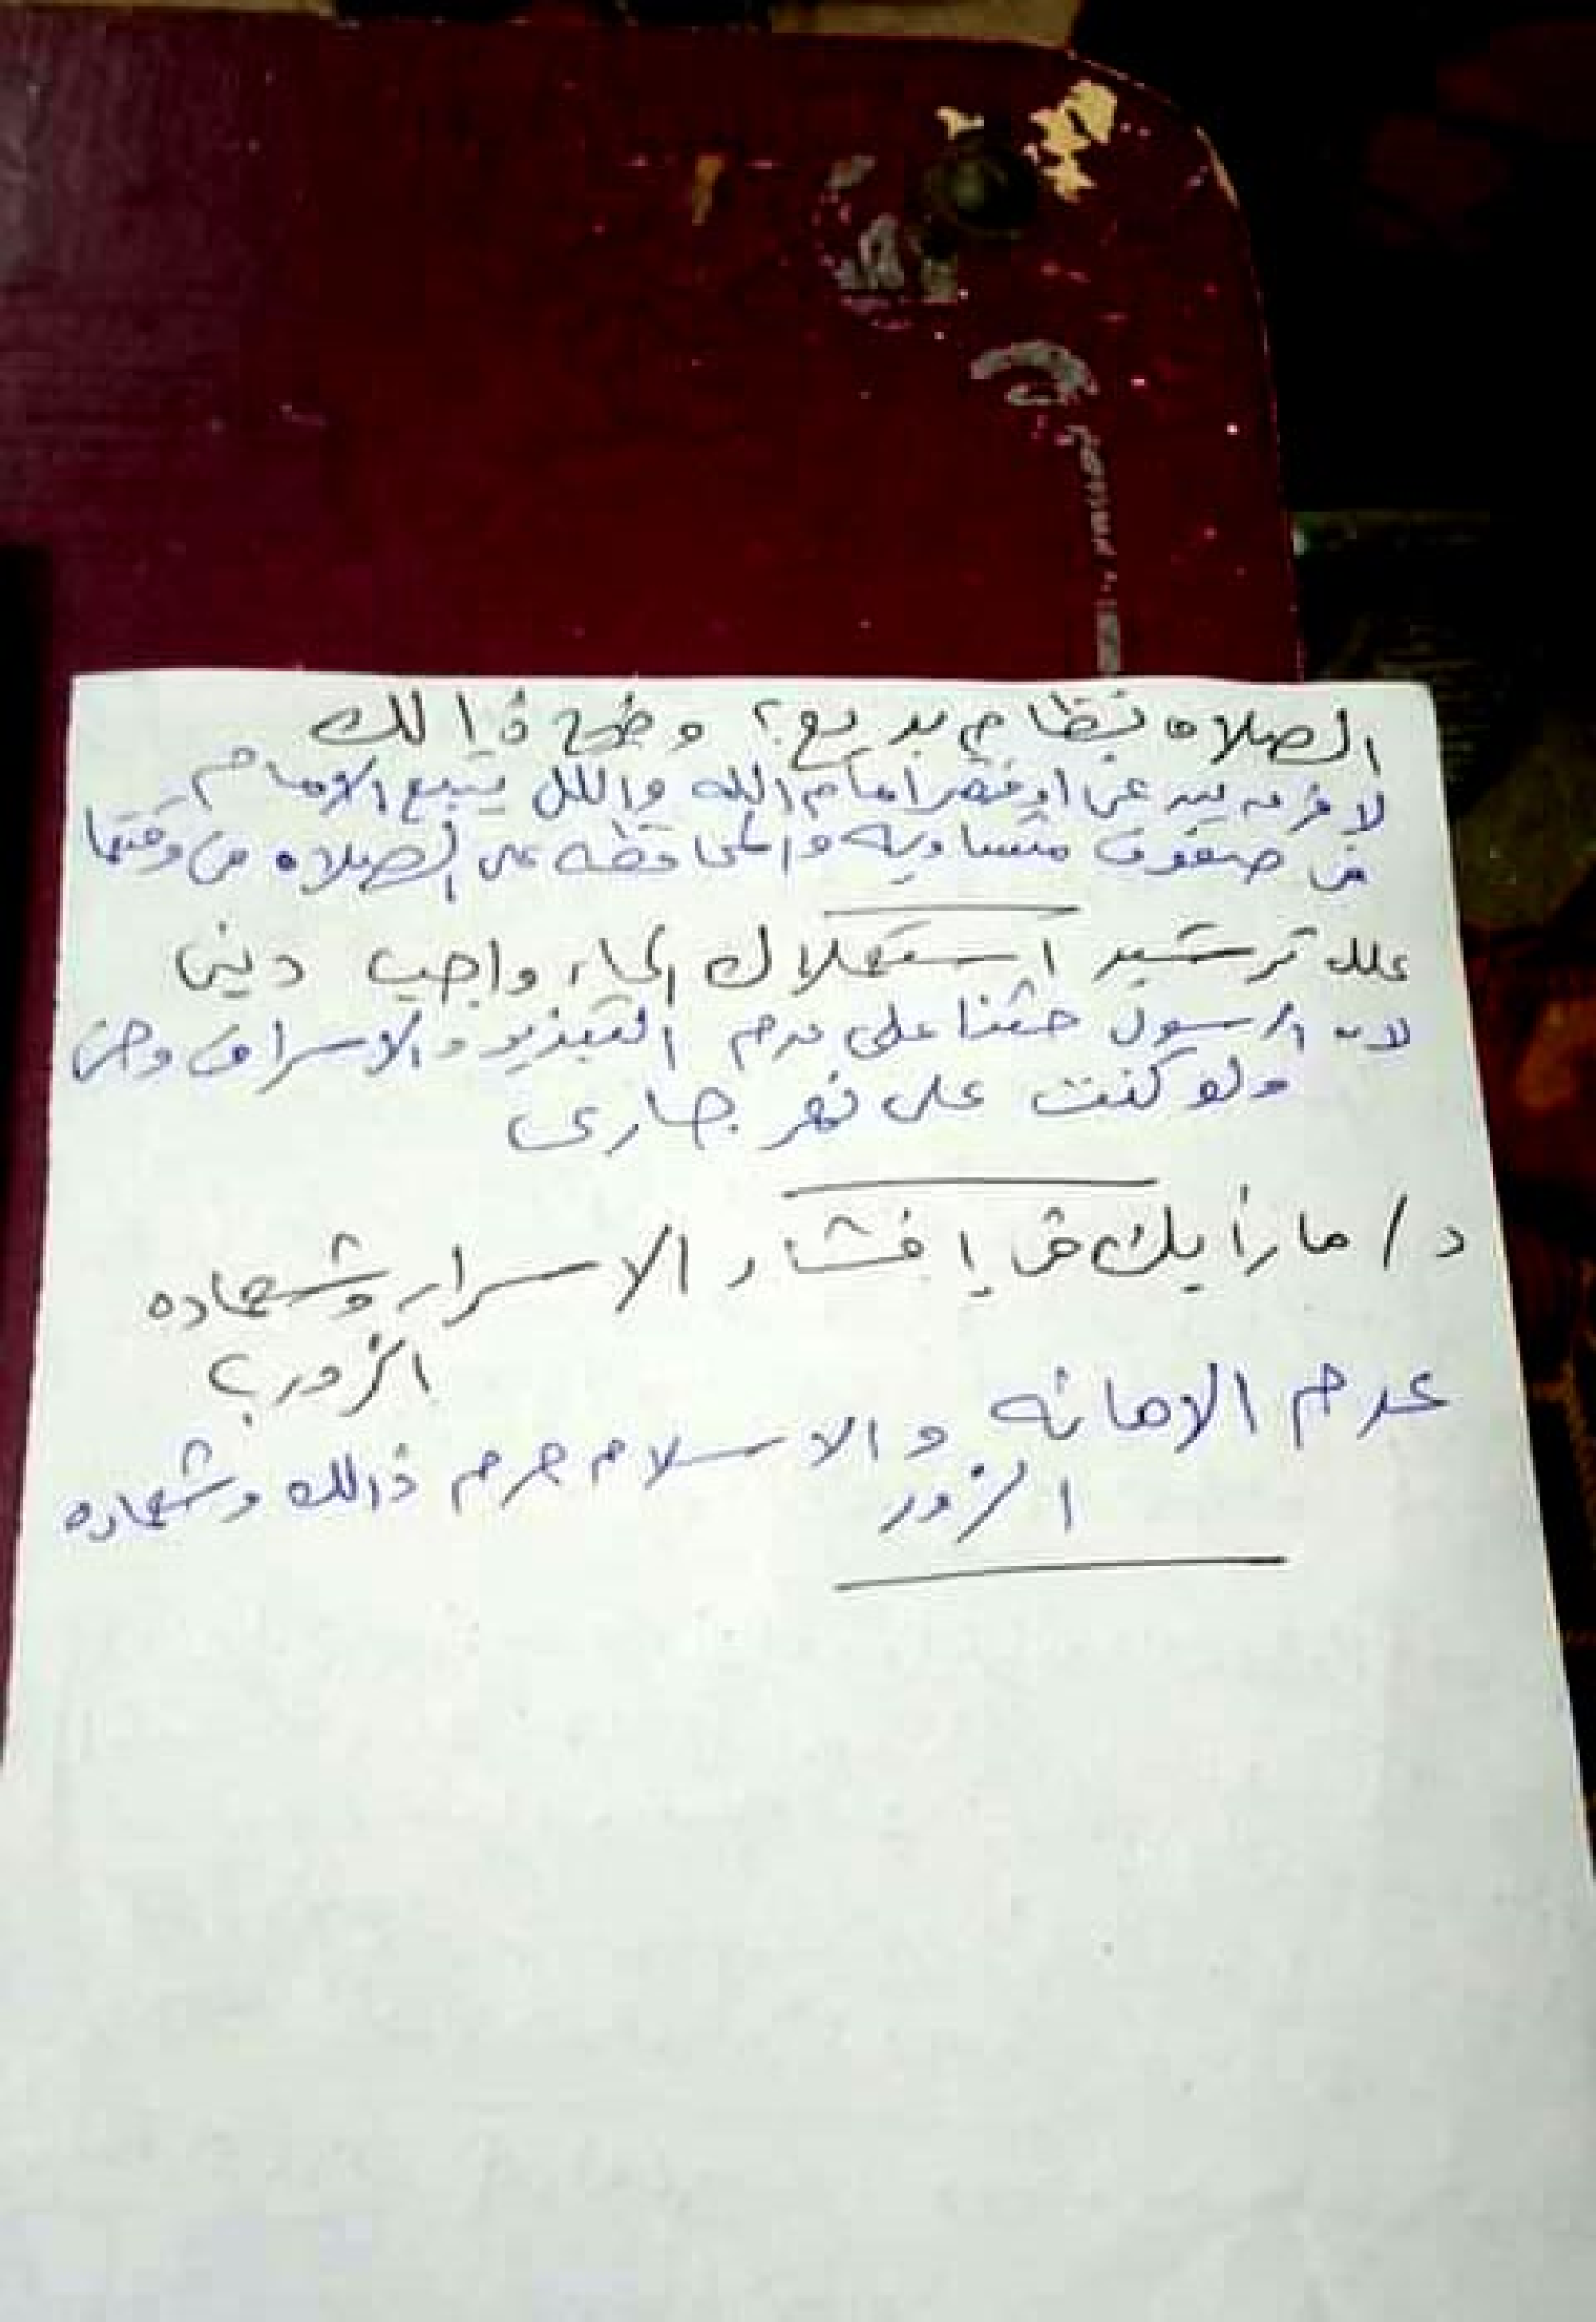 الصلاه نظام بديع؟ وضح ذالك
لا فرق بين غنى او فقير امام الله والكل يتبع الامام
فى صفوف متساويه والمحافظه على الصلاه فى وقتها
علل ترشيد استهلاك الماء واجب دينى
لان الرسول حثنا على عدم التبذير والاسراف وحتى
ولو كنت على نهر جارى
د/ ما رأيك فى إفشاء الاسرار وشهاده
الزور؟
عدم الامانه والاسلام حرم ذالك وشهاده
الزور